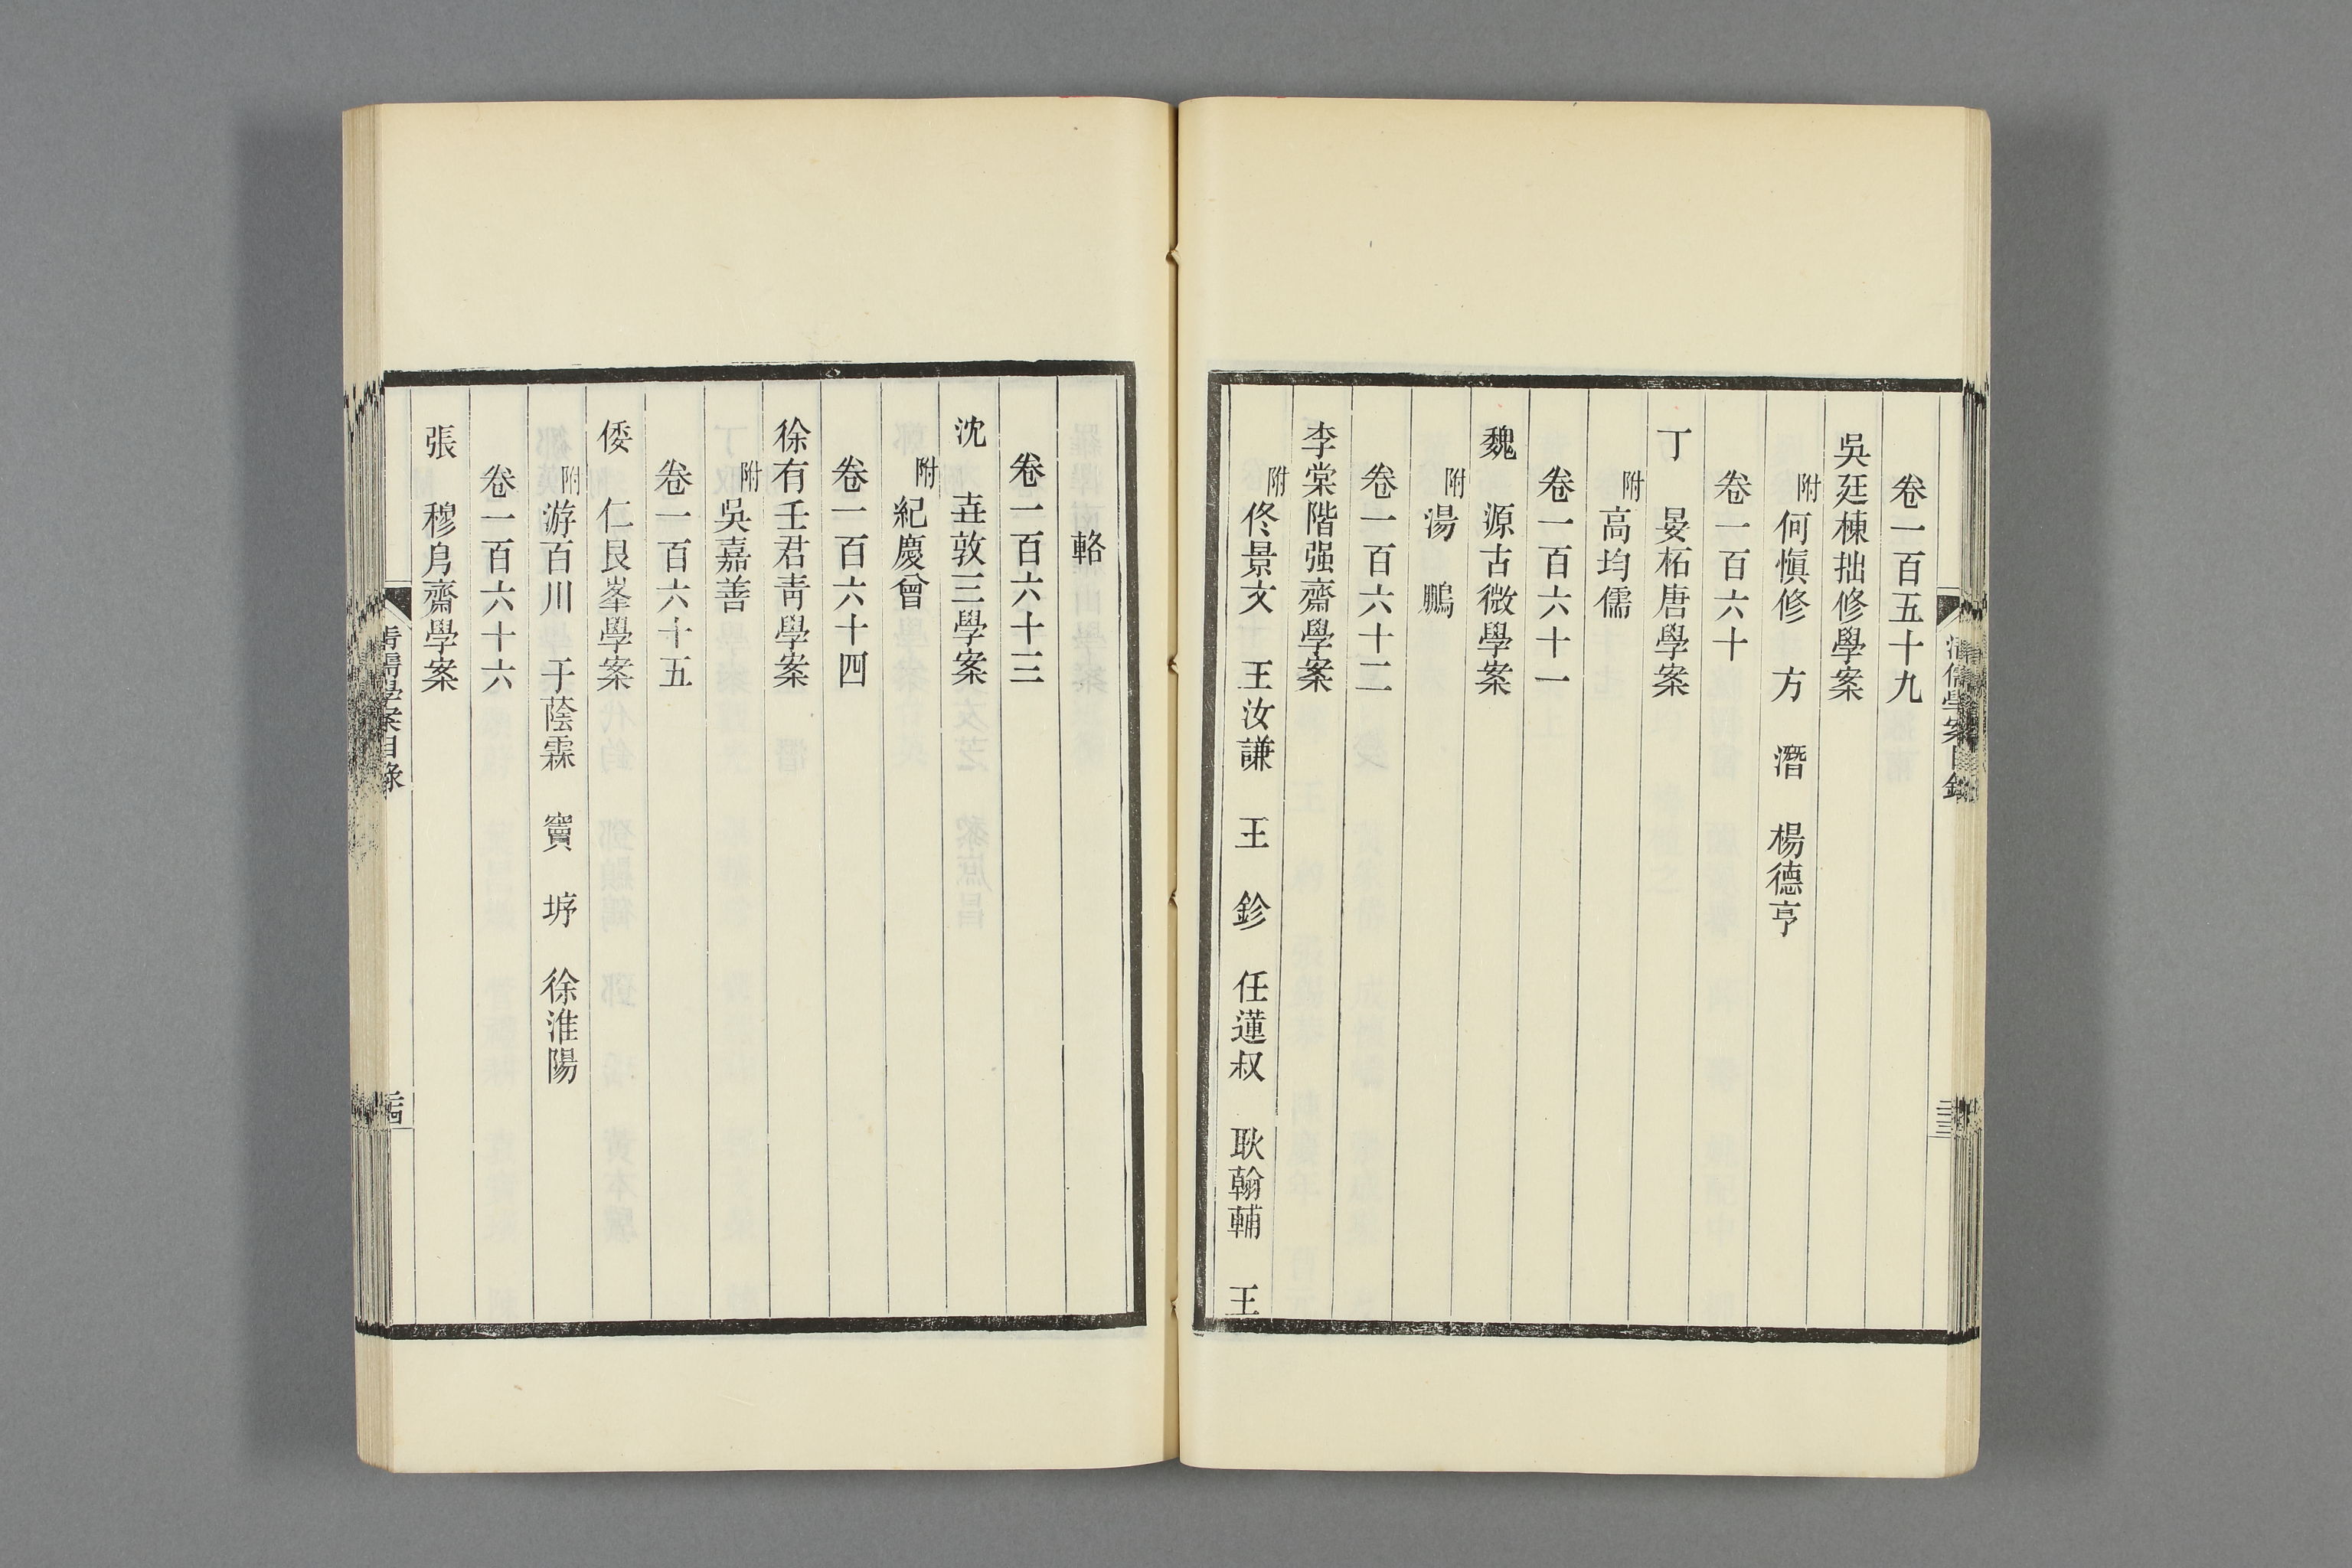 清儒學案目錄
卷一百五十九
吳廷棟拙修學案
附何愼修　方　潛　楊德亨
卷一百六十
丁　晏柘唐學案
附高均儒
卷一百六十一
魏　源古微學案
附湯　鵬
卷一百六十二
李棠階强齋學案
附佟景文　王汝謙　王　鉁　任蓮叔　耿翰輔　王
輅
卷一百六十三
沈　垚敦三學案
附紀慶曾
卷一百六十四
徐有壬君靑學案
附吳嘉善
卷一百六十五
倭　仁艮峯學案
附游百川　于蔭霖　竇　垿　徐淮陽
卷一百六十六
張　穆㐆齋學案
清儒學案目錄